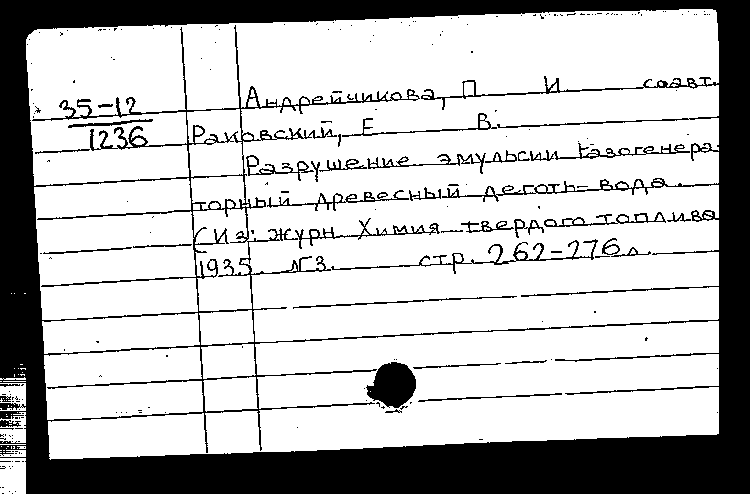 35-12
1236
Андрейчикова, П И соавт.
Раковский, Е В.
Разрушение эмульсии газогенера-
торный древесный деготь-вода.
(Из: журн Химия твердого топлива
1935 №3. стр. 262-276 л.